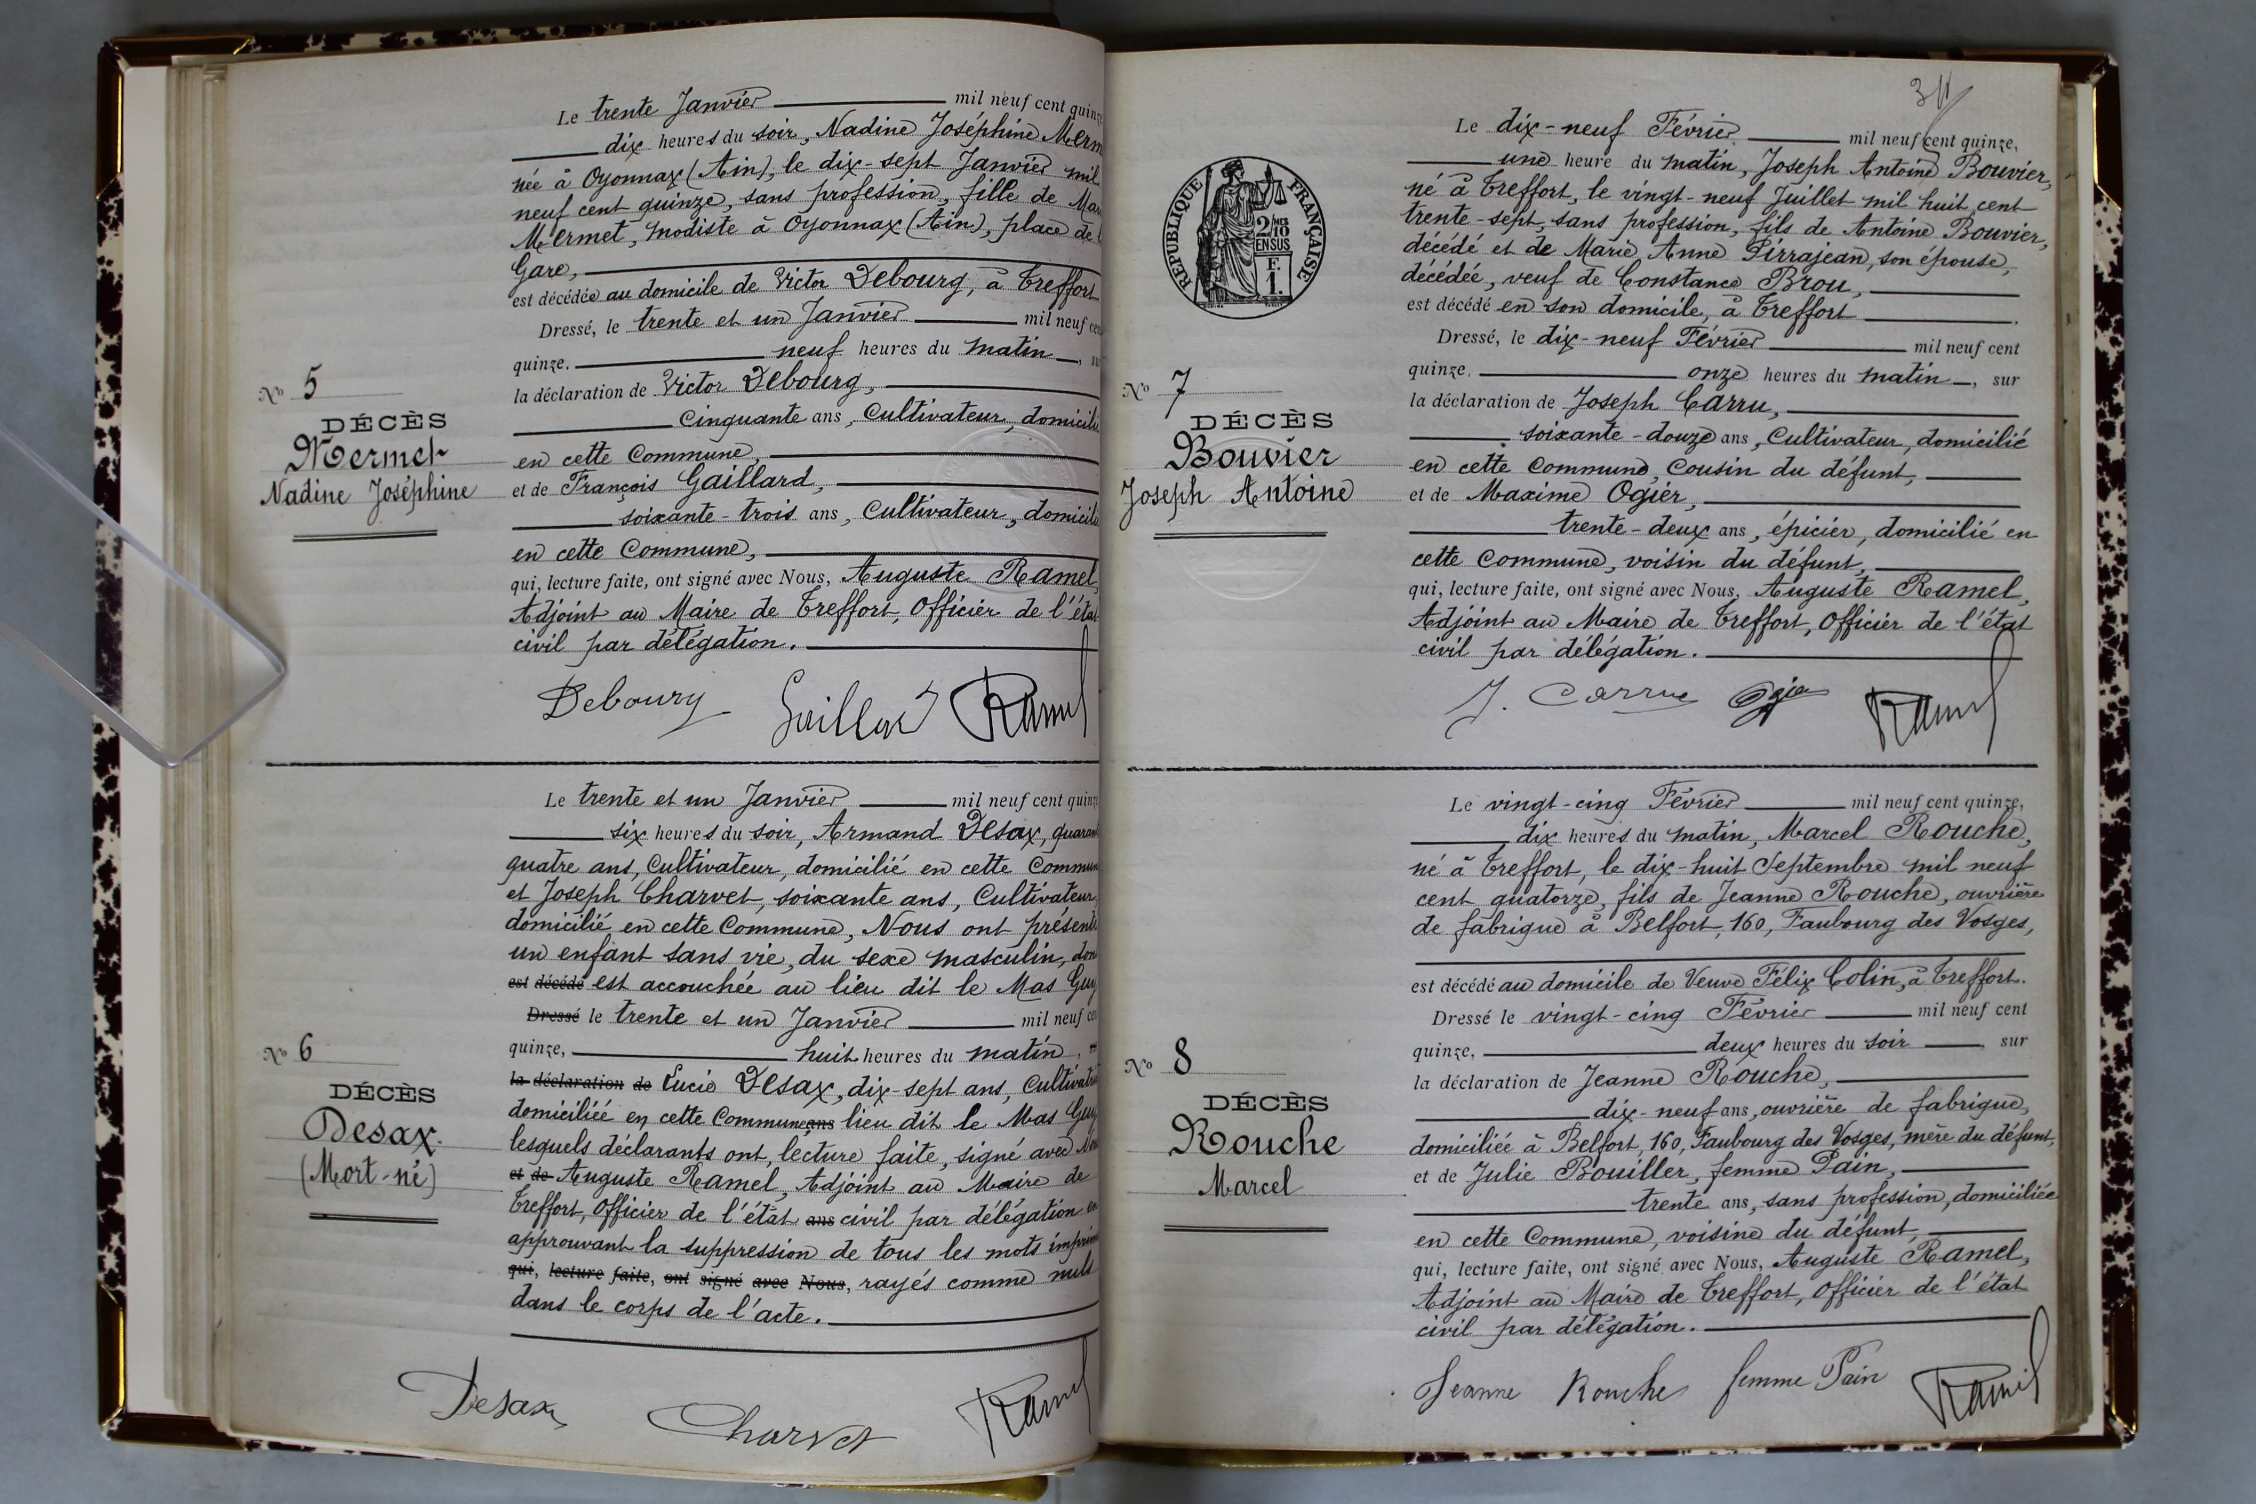 Le trente Janvier mil neuf cent quinze
dix heures du soir, Nadine Joséphine Merm
née à Oyonnax (Ain), le dix-sept Janvier mil
neuf cent quinze, sans profession, fille de Mar
Mermet, modiste à Oyonnax (Ain), place de
Gare,
est décédée au domicile de Victor Debourg, à Treffort
Dressé, le trente et un Janvier mil neuf cen
quinze. neuf heures du matin,
No 5
la déclaration de Victor Debourg,
DÉCÈS
cinquante ans, Cultivateur, domicilié
Mermet
en cette Commune,
Nadine Joséphine
et de François Gaillard,
soixante-trois ans, Cultivateur, domicili
en cette Commune,
qui, lecture faite, ont signé avec Nous, Auguste Ramel,
Adjoint au Maire de Treffort, Officier de l'état
civil par délégation.
Debourg Gaillard Ramel
Le trente et un Janvier mil neuf cent quinze
six heures du soir, Armand Desax, quarant
quatre ans, Cultivateur, domicilié en cette Commun
et Joseph Charvet, soixante ans, Cultivateur,
domicilié en cette Commune, Nous ont présenté
un enfant sans vie, du sexe masculin, don
est décédé est accouchée au lieu dit le Mas Guy
Dressé le trente et un Janvier mil neuf cen
quinze, huit heures du matin,
No 6
la déclaration de Lucie Desax, dix-sept ans, Cultivatri
DÉCÈS
domiciliée en cette Commune ans lieu dit le Mas Guy
Desax.
lesquels déclarants ont, lecture faite, signé avec
(Mort-né)
et de Auguste Ramel, Adjoint au Maire de
Treffort, Officier de l'état ans civil par délégation en
approuvant la suppression de tous les mots imprim
qui, lecture faite, ont signé avec Nous, rayés comme nuls
dans le corps de l'acte.
Desax Charvet Ramel
REPUBLIQUE FRANÇAISE
2/10 EN SUS
F.
1.
Le dix-neuf Février mil neuf cent quinze,
une heure du matin, Joseph Antoine Bouvier,
né à Treffort, le vingt-neuf Juillet mil huit cent
trente-sept, sans profession, fils de Antoine Bouvier,
décédé et de Marie Anne Pirrajean, son épouse,
décédée, veuf de Constance Brou,
est décédé en son domicile, à Treffort.
Dressé, le dix-neuf Février mil neuf cent
quinze. onze heures du matin, sur
No 7
la déclaration de Joseph Carru,
DÉCÈS
soixante-douze ans, Cultivateur, domicilié
Bouvier
en cette Commune, Cousin du défunt,
Joseph Antoine
et de Maxime Ogier,
trente-deux ans, épicier, domicilié en
cette Commune, voisin du défunt,
qui, lecture faite, ont signé avec Nous, Auguste Ramel,
Adjoint au Maire de Treffort, Officier de l'état
civil par délégation.
J. Carrue Ogier Ramel
Le vingt-cinq Février mil neuf cent quinze,
dix heures du matin, Marcel Rouche,
né à Treffort, le dix-huit Septembre mil neuf
cent quatorze, fils de Jeanne Rouche, ouvrière
de fabrique à Belfort, 160, Faubourg des Vosges,
est décédé au domicile de Veuve Félix Colin, à Treffort.
Dressé le vingt-cinq Février mil neuf cent
quinze, deux heures du soir, sur
No 8
la déclaration de Jeanne Rouche,
DÉCÈS
dix-neuf ans, ouvrière de fabrique,
Rouche
domiciliée à Belfort, 160, Faubourg des Vosges, mère du défunt,
et de Julie Bouiller, femme Pain,
Marcel
trente ans, sans profession, domiciliée
en cette Commune, voisine du défunt,
qui, lecture faite, ont signé avec Nous, Auguste Ramel,
Adjoint au Maire de Treffort, Officier de l'état
civil par délégation.
Jeanne Rouche femme Pain Ramel